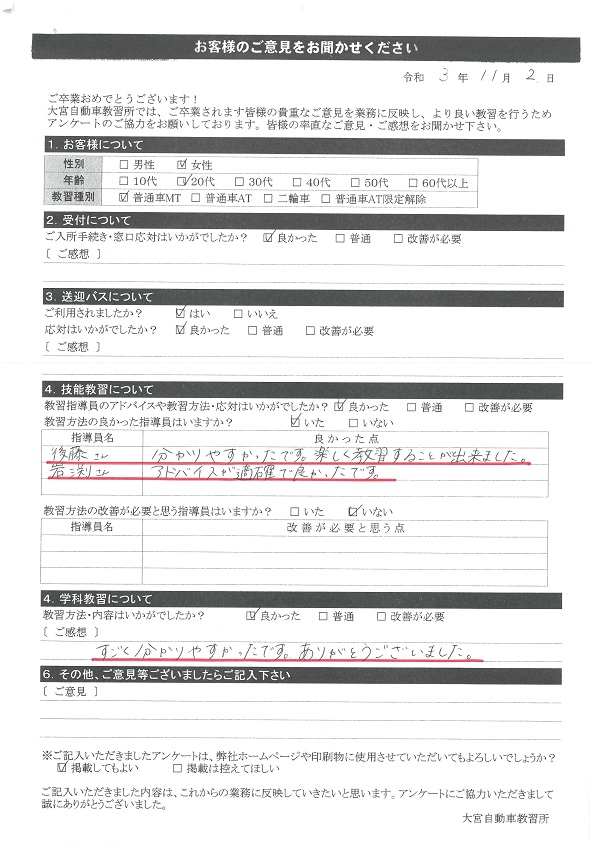 お客様のご意見をお聞かせください
令和 3 年 11 月 2 日
ご卒業おめでとうございます！
大宮自動車教習所では、ご卒業されます皆様の貴重なご意見を業務に反映し、より良い教習を行うため
アンケートのご協力をお願いしております。皆様の率直なご意見・ご感想をお聞かせ下さい。
1. お客様について
性別 □ 男性 ☑ 女性
年齢 □ 10代 ☑ 20代 □ 30代 □ 40代 □ 50代 □ 60代以上
教習種別 ☑ 普通車MT □ 普通車AT □ 二輪車 □ 普通車AT限定解除
2. 受付について
ご入所手続き・窓口応対はいかがでしたか？ ☑ 良かった □ 普通 □ 改善が必要
〔 ご感想 〕
3. 送迎バスについて
ご利用されましたか？ ☑ はい □ いいえ
応対はいかがでしたか？ ☑ 良かった □ 普通 □ 改善が必要
〔 ご感想 〕
4. 技能教習について
教習指導員のアドバイスや教習方法・応対はいかがでしたか？ ☑ 良かった □ 普通 □ 改善が必要
教習方法の良かった指導員はいますか？ ☑ いた □ いない
指導員名 良かった点
後藤さん 分かりやすかったです。楽しく教習することが出来ました。
岩渕さん アドバイスが適確で良かったです。
教習方法の改善が必要と思う指導員はいますか？ □ いた ☑ いない
指導員名 改善が必要と思う点
4. 学科教習について
教習方法・内容はいかがでしたか？ ☑ 良かった □ 普通 □ 改善が必要
〔 ご感想 〕
すごく分かりやすかったです。ありがとうございました。
6. その他、ご意見等ございましたらご記入下さい
〔 ご意見 〕
※ご記入いただきましたアンケートは、弊社ホームページや印刷物に使用させていただいてもよろしいでしょうか？
☑ 掲載してもよい □ 掲載は控えてほしい
ご記入いただきました内容は、これからの業務に反映していきたいと思います。アンケートにご協力いただきまして
誠にありがとうございました。
大宮自動車教習所